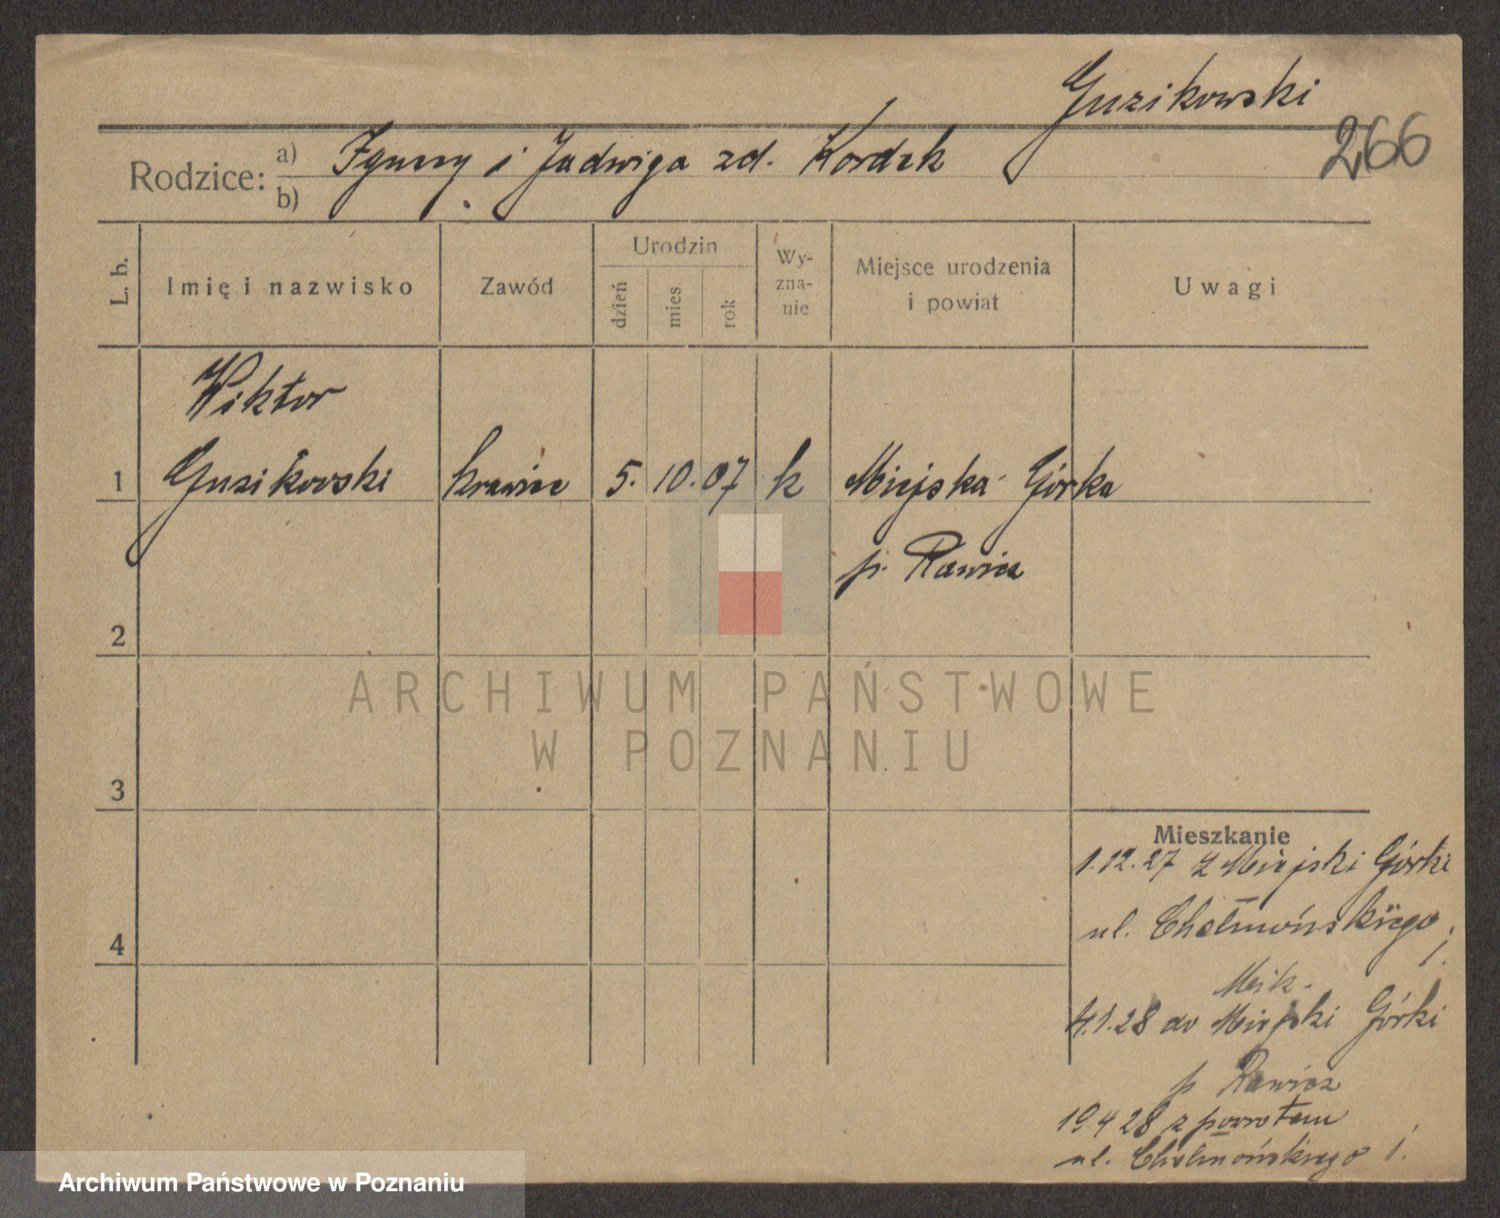 Guzikowski
266
Rodzice: a) Ignacy i Jadwiga zd. Kordek
b)
L. b.
Imię i nazwisko
Zawód
Urodzin
dzień
mies
rok
Wy-
zna-
nie
Miejsce urodzenia
i powiat
Uwagi
Wiktor
1 Guzikowski krawiec 5. 10. 07 k Miejska Górka
p. Rawicz
2
ARCHIWUM PAŃSTWOWE
W POZNANIU
3
Mieszkanie
1.12.27 z Miejski Górki
ul. Chełmońskiego
4
4.1.28 do Miejski Górki
p Rawicz
19 4 28 z powrotem
ul. Chełmońskiego 1.
Archiwum Państwowe w Poznaniu